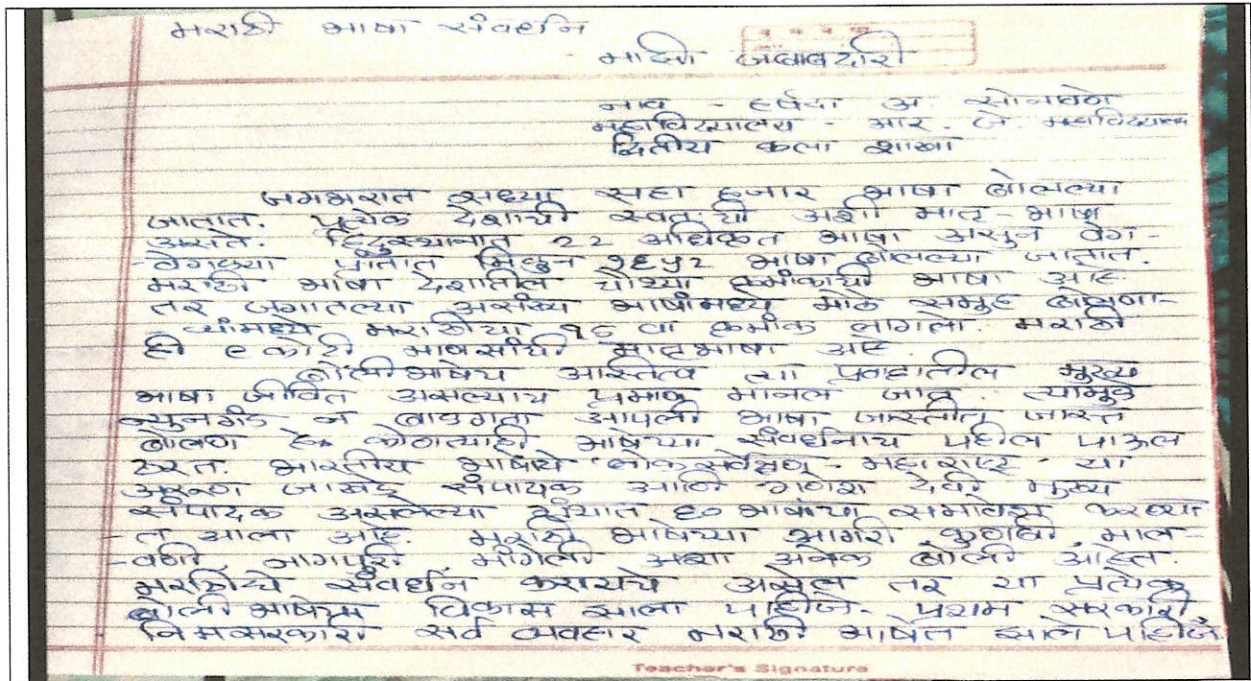 मराठी भाषा संवर्धन
- माझी जबाबदारी
नाव - हर्षदा अ. सोनावणे
महाविद्यालय - आर. जे. महाविद्यालय
द्वितीय कला शाखा
जगभरात सध्या सहा हजार भाषा बोलल्या
जातात. प्रत्येक देशाची स्वतःची अशी मातृ-भाषा
असते. हिंदुस्थानात २२ अधिकृत भाषा असुन वेग-
-वेगळ्या प्रांतात मिळुन १६५२ भाषा बोलल्या जातात.
मराठी भाषा देशातील चौथ्या क्रमांकाची भाषा आहे
तर जगातल्या असंख्य भाषांमध्ये समुह बोलणा-
-र्‍यांमध्ये मराठीचा १६ वा क्रमांक लागतो. मराठी
ही ९ कोटी माणसांची मातृभाषा आहे.
बोलीभाषेच आस्तित्व त्या प्रवाहातील मुख्य
भाषा जीवित असल्याच प्रमाण मानल जात. त्यामुळे
न्युनगंड न बाळगता आपली भाषा जास्तीत जास्त
बोलण हेच कोणत्याही भाषेच्या संवर्धनाच पहील पाऊल
ठरत. भारतीय भाषांचे लोकसर्वेक्षण - महाराष्ट्र - या
अरूण जाखडे संपादक आणि गणेश देवी मुख्य
संपादक असलेल्या ग्रंथात ६० भाषांचा समावेश करण्या
-त आला आहे. मराठी भाषेच्या आगरी, कुणबी, माल-
-वणी, नागपुरी, मांगेली अशा अनेक बोली आहेत.
मराठीचे संवर्धन करायचे असेल तर या प्रत्येक
बोलीभाषेचा विकास झाला पाहीजे. प्रथम सरकारी
निमसरकारी सर्व व्यवहार मराठी भाषेत झाले पाहीजे.
Teacher's Signature